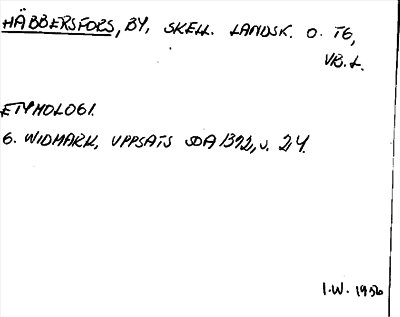 HÄBBERSFORS, BY, SKELL. LANDSK. O. TG,
VB. L.
ETYMOLOGI.
G. WIDMARK, UPPSATS DA 1392, s. 24.
I.W. 1956